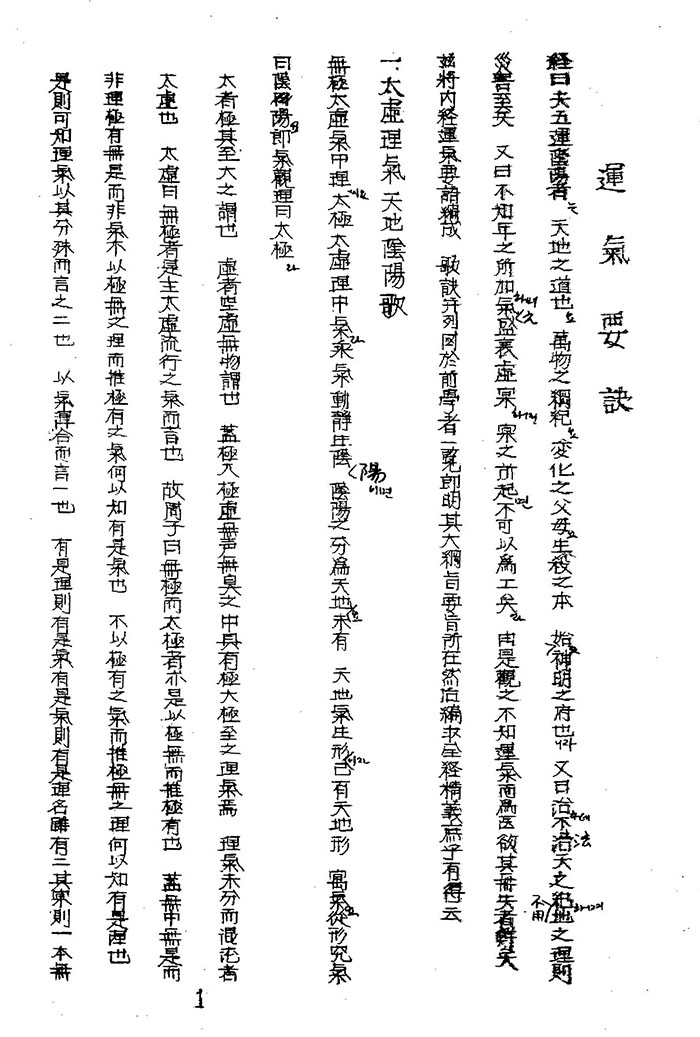 運氣要訣
經曰夫五運陰陽者 天地之道也 萬物之綱紀 變化之父母生殺之本 始神明之府也 又曰治不法天之紀不用地之理則
災害至矣 又曰不知年之所加氣之盛衰虛実 実之所起不可以爲工矣 由是觀之不知運氣而爲医欲其無失者鮮矣
玆將内經運氣要語編成 歌訣并列図於前學者一覽即明其大綱旨要旨所在然后徧求全經精義庶乎有得云
一.太虛理氣天地陰陽歌
無極太虛氣中理 太極太虛理中氣乘氣動靜生陰陽 陰陽之分爲天地未有 天地氣生形已有天地形 寓氣從形究氣
曰陰陽即氣觀理曰太極
太者極其至大之謂也 虛者空虛無物謂也 蓋極大極虛無声無臭之中具有極大極至之理氣焉 理氣未分而混沌者
太虛也 太虛曰無極者是主太虛流行之氣而言也 故周子曰無極而太極者亦是以極無而推極有也 蓋無中無是而
非理極有無是而非氣不以極無之理而推極有之氣何以知有是氣也 不以極有之氣而推極無之理何以知有是理也
是則可知理氣以其分殊而言之二也 以氣渾合而言一也 有是理則有是氣有是氣則有是理名雖有二其実則一本無
1